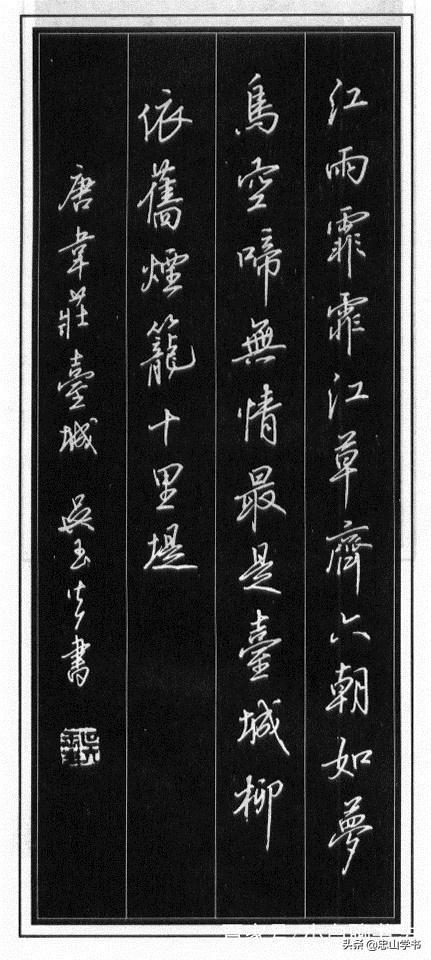 江雨霏霏江草齊六朝如夢
鳥空啼無情最是臺城柳
依舊煙籠十里堤
唐韋莊臺城 吳玉生書
头条 @忠山学书